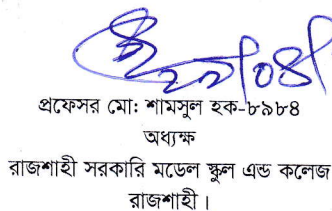 প্রফেসর মো: শামসুল হক-৮৯৮৪
অধ্যক্ষ
রাজশাহী সরকারি মডেল স্কুল এন্ড কলেজ
রাজশাহী।